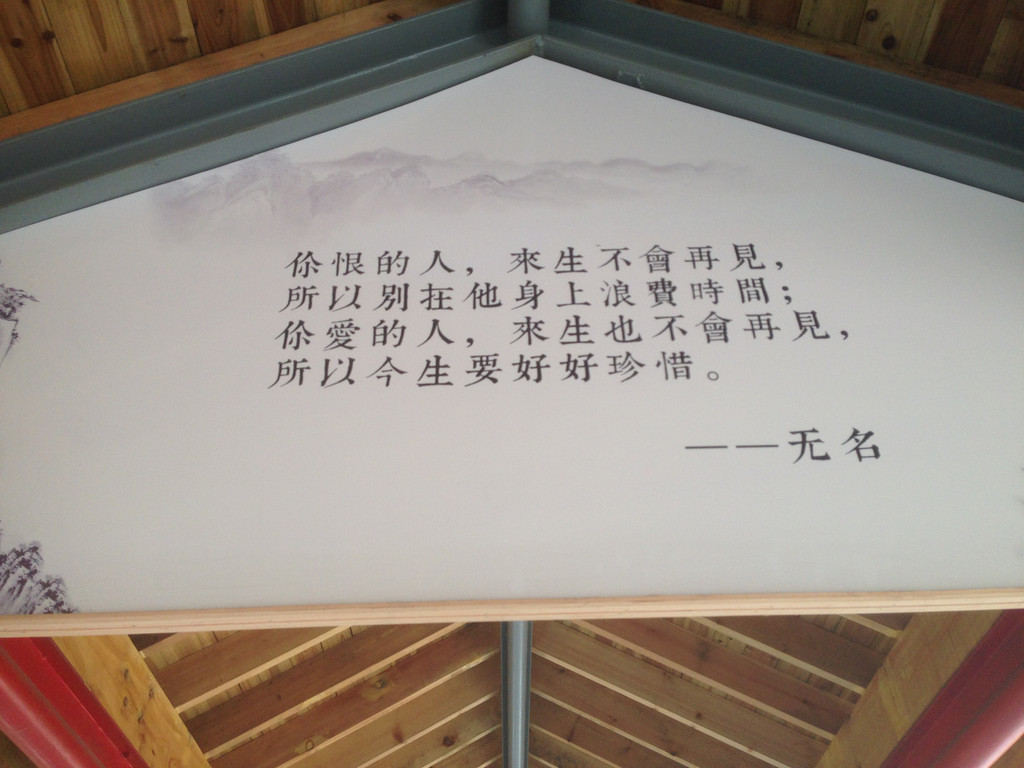 你恨的人，來生不會再見，
所以別在他身上浪費時間；
你愛的人，來生也不會再見，
所以今生要好好珍惜。
——无名